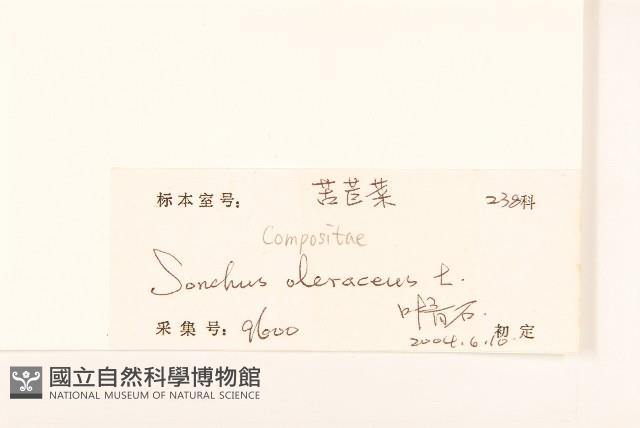 标本室号: 苦苣菜 238科
Compositae
Sonchus oleraceus L.
采集号: 9600 叶育石. 初定
2004.6.10.
國立自然科學博物館
NATIONAL MUSEUM OF NATURAL SCIENCE